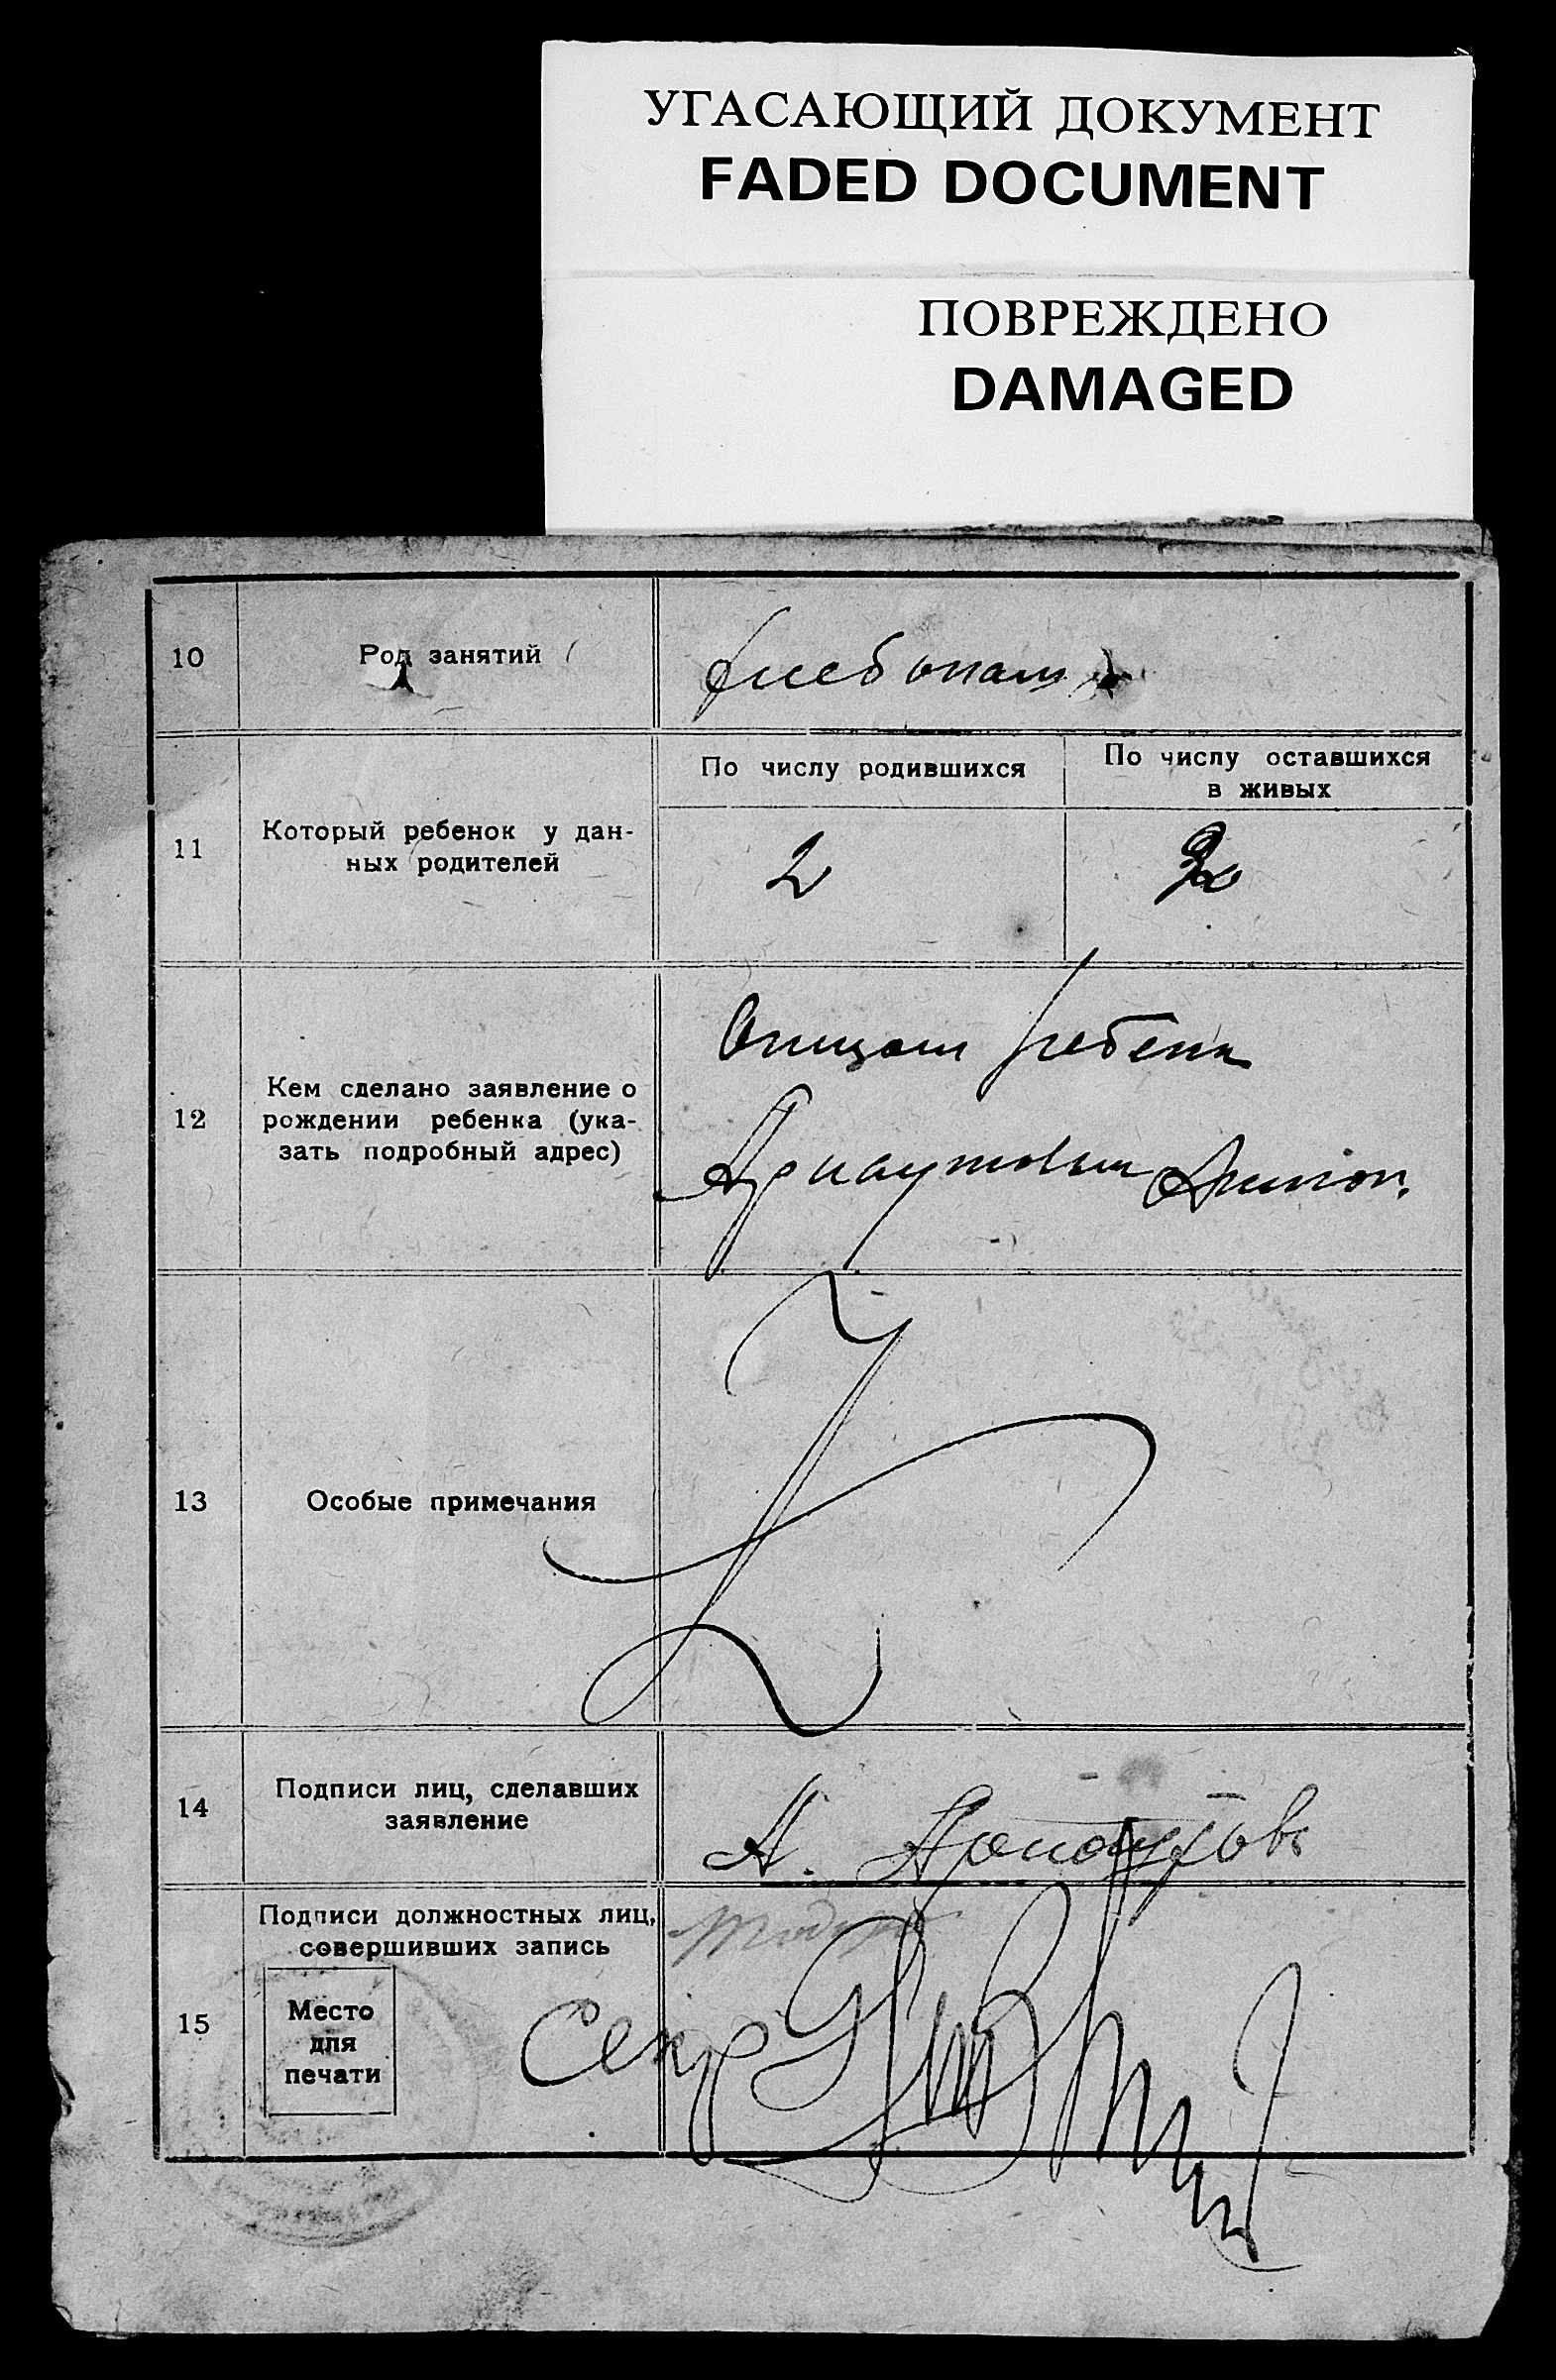 УГАСАЮЩИЙ ДОКУМЕНТ
FADED DOCUMENT
ПОВРЕЖДЕНО
DAMAGED
10
Род занятий
11
Который ребенок у дан-
ных родителей
По числу родившихся
2
По числу оставшихся
в живых
2
12
Кем сделано заявление о
рождении ребенка (ука-
зать подробный адрес)
Отцом ребенк
Арнаутовым Антон.
13
Особые примечания
14
Подписи лиц, сделавших
заявление
А. Арнаутовъ
15
Подписи должностных лиц,
совершивших запись
Место
для
печати
Секр